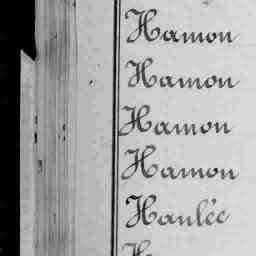 Hamon
Hamon
Hamon
Hamon
Hanlée